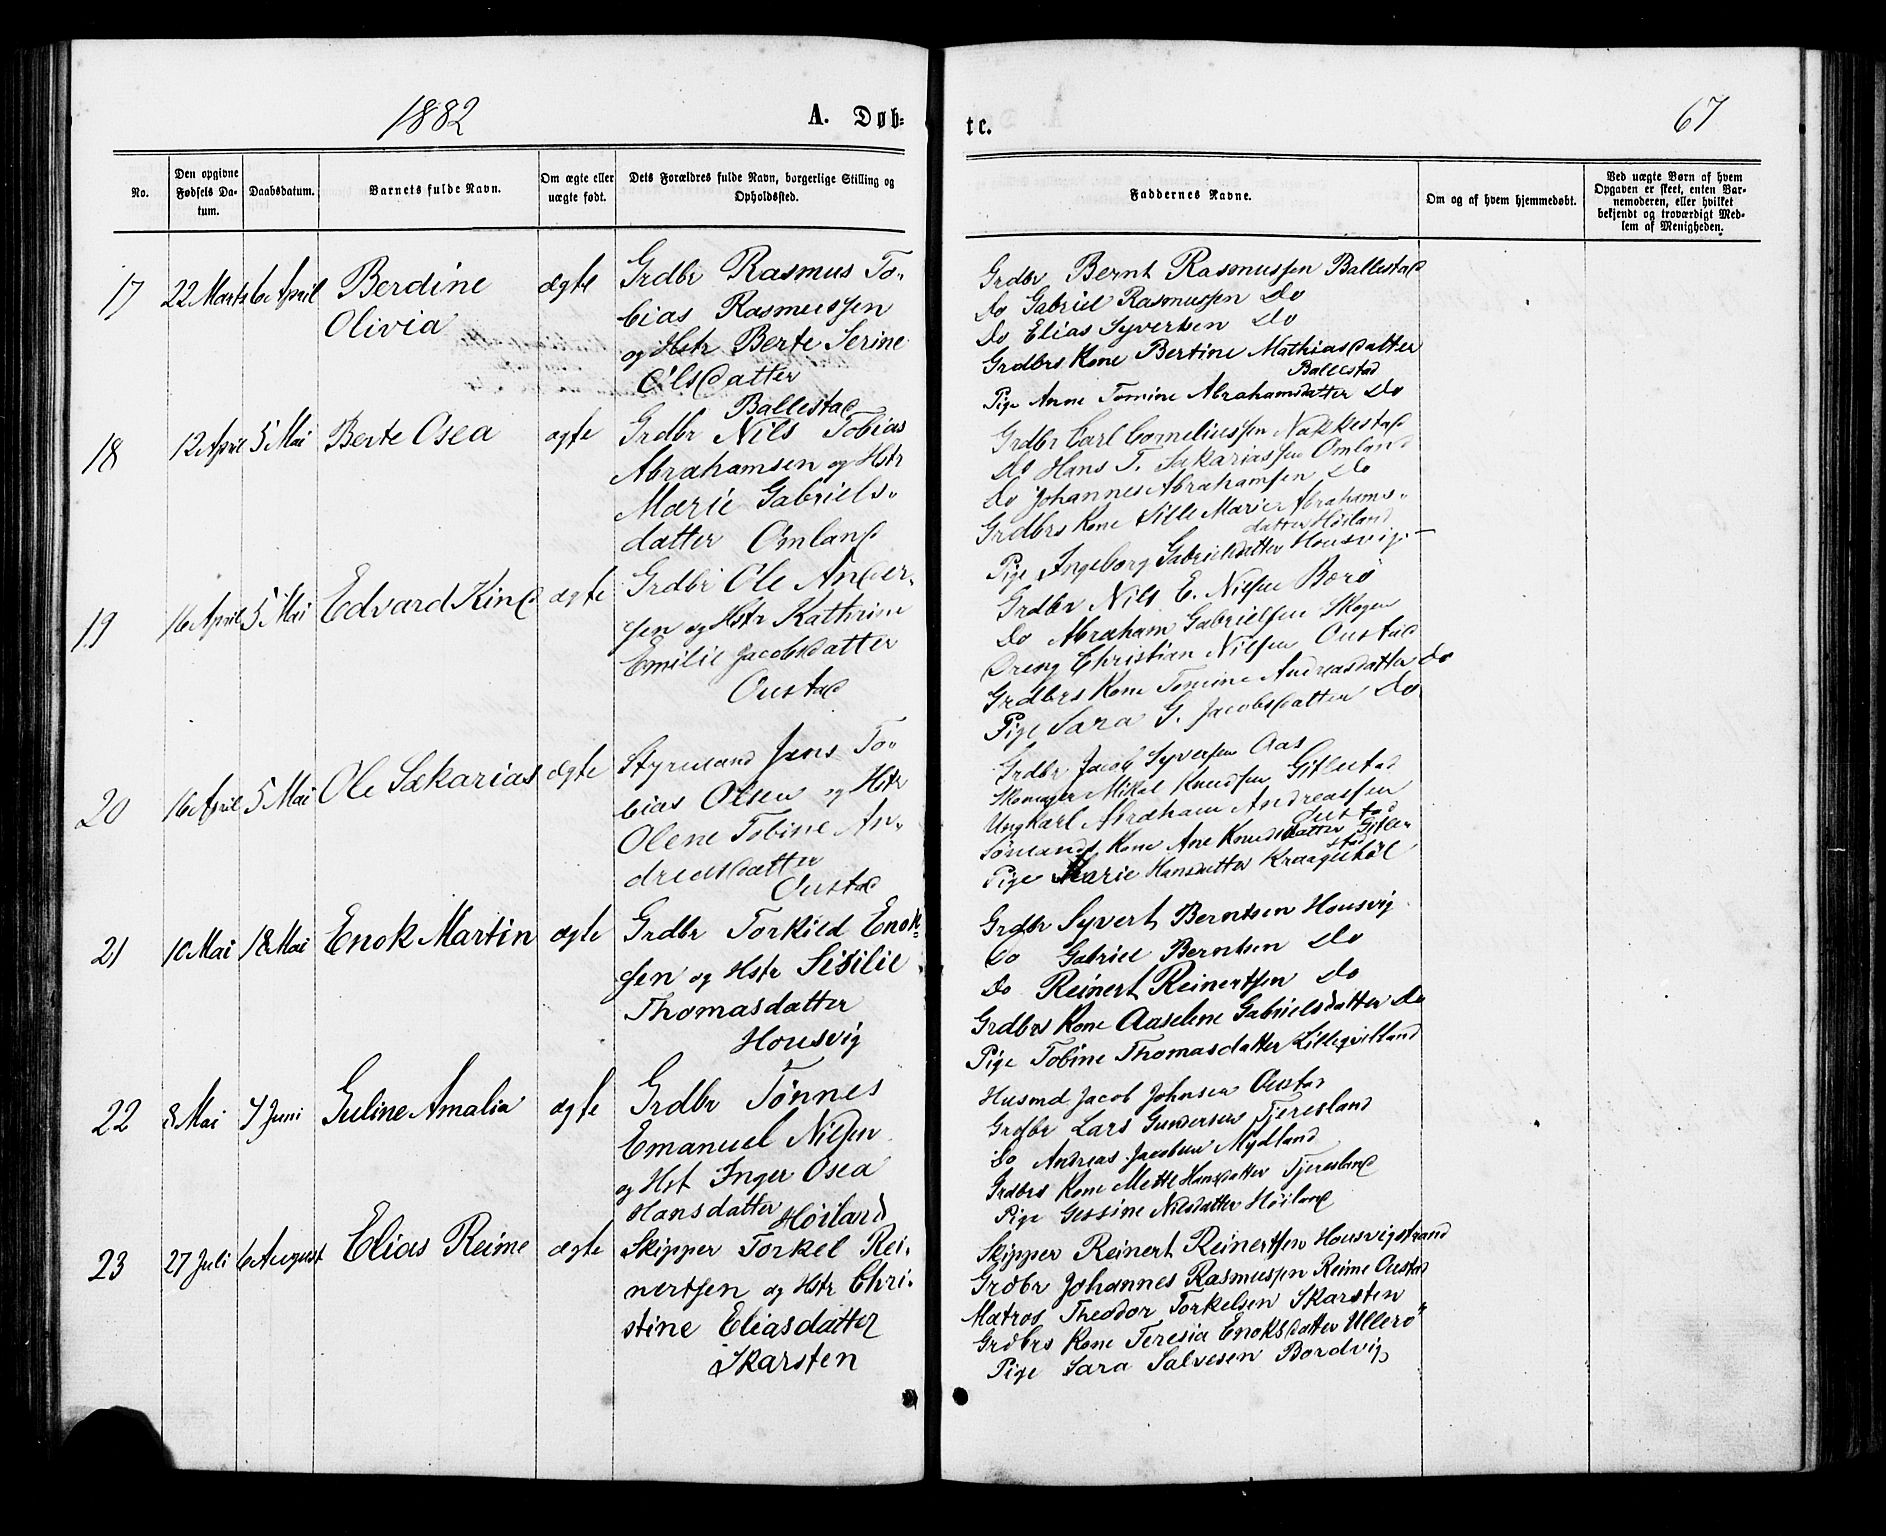 1882
A. Døb-
te.
67
No.
Den opgivne
Fødsels Da-
tum.
Daabsdatum.
Barnets fulde Navn.
Om ægte eller
uægte født.
Dets Forældres fulde Navn, borgerlige Stilling og
Opholdssted.
Faddernes Navne.
Om og af hvem hjemmedøbt.
Ved uægte Børn af hvem
Opgaven er skeet, enten Bar-
nemoderen, eller hvilket
bekjendt og troværdigt Med-
lem af Menigheden.
17
22 Marts
6 April
Berdine
Olivia
ægte
Grdbr Rasmus To-
bias Rasmussen
og Hstr Berte Serine
Olsdatter
Ballestad
Grdbr Bernt Rasmussen Ballestad
do Gabriel Rasmussen do
do Elias Syvertsen do
Grdbrs Kone Bertine Mathiasdatter
Ballestad
Pige Anne Tomine Abrahamsdatter do
18
12 April
5 Mai
Berte Osea
ægte
Grdbr Nils Tobias
Abrahamsen og Hstr
Marie Gabriels-
datter Omland
Grdbr Carl Corneliussen Nakkestad
do Hans T. Sakariassen Omland
do Johannes Abrahamsen do
Grdbrs Kone Sille Marie Abrahams-
datter Höiland
Pige Ingeborg Gabrielsdatter Housvig
19
16 April
5 Mai
Edvard Kind
ægte
Grdbr Ole Ander-
sen og Hstr Kathrine
Emilie Jacobsdatter
Oustad
Grdbr Nils E. Nilsen Borö
do Abraham Gabrielsen Skogen
Dreng Christian Nilsen Oustad
Grdbrs Kone Tomine Andreasdatter do
Pige Sara G. Jacobsdatter do
20
16 April
5 Mai
Ole Sakarias
ægte
Styrmand Jens To-
bias Olsen og Hstr
Olene Tobine An-
dreasdatter
Oustad
Grdbr Jacob Syversen Aas
Skomager Mikal Knudsen Gitlestad
Ungkarl Abraham Andreassen
Oustad
Sömands Kone Ane Knudsdatter Gitle-
stad
Pige Marie Hansdatter Kraageböl
21
10 Mai
18 Mai
Enok Martin
ægte
Grdbr Torkild Enok-
sen og Hstr Sisilie
Thomasdatter
Housvig
Grdbr Syvert Berntsen Housvig
do Gabriel Berntsen do
do Reinert Reinertsen do
Grdbrs Kone Aaselene Gabrielsdatter do
Pige Tobine Thomasdatter Lilleqvilland
22
8 Mai
7 Juni
Guline Amalia
ægte
Grdbr Tönnes
Emanuel Nilsen
og Hst Inger Osea
Hansdatter Höiland
Husmd Jacob Johnsen Oustad
Grdbr Lars Gundersen Tjeresland
do Andreas Jacobsen Mydland
Grdbrs Kone Mette Hansdatter Tjeresland
Pige Gessine Nilsdatter Höiland
23
27 Juli
6 August
Elias Reime
ægte
Skipper Torkel Rei-
nertsen og Hstr Chri-
stine Eliasdatter
Skarsten
Skipper Reinert Reinertsen Housvigstrand
Grdbr Johannes Rasmussen Reime Oustad
Matros Theodor Torkelsen Skarsten
Grdbrs Kone Teresia Enoksdatter Ullerö
Pige Sara Salvesen Bordvig